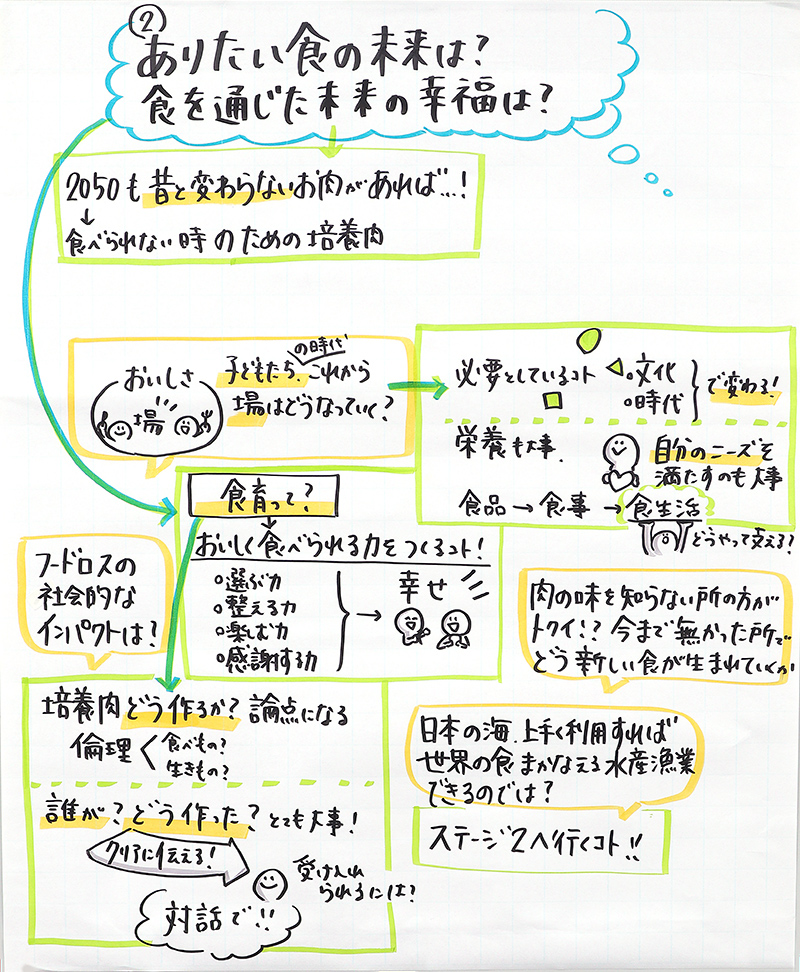 ②
ありたい食の未来は?
食を通じた未来の幸福は?
2050も昔と変わらないお肉があれば…!
↓
食べられない時のための培養肉
おいしさ
場
の時代
子どもたち、これから
場はどうなっていく?
必要としているコト
○文化
○時代
で変わる!
栄養も大事、
自分のニーズを
満たすのも大事
食品→食事→食生活
どうやって支える?
食育って?
おいしく食べられる力をつくるコト!
○選ぶ力
○整える力
○楽しむ力
○感謝する力
→
幸せ
フードロスの
社会的な
インパクトは?
肉の味を知らない所の方が
トクイ!? 今まで無かった所で
どう新しい食が生まれていくか
培養肉どう作るか? 論点になる
倫理<
食べもの?
生きもの?
誰が?どう作った?とても大事!
クリアに伝える!
受け入れ
られるには?
対話で!!
日本の海、上手く利用すれば
世界の食まかなえる水産漁業
できるのでは?
ステージ2へ行くコト!!